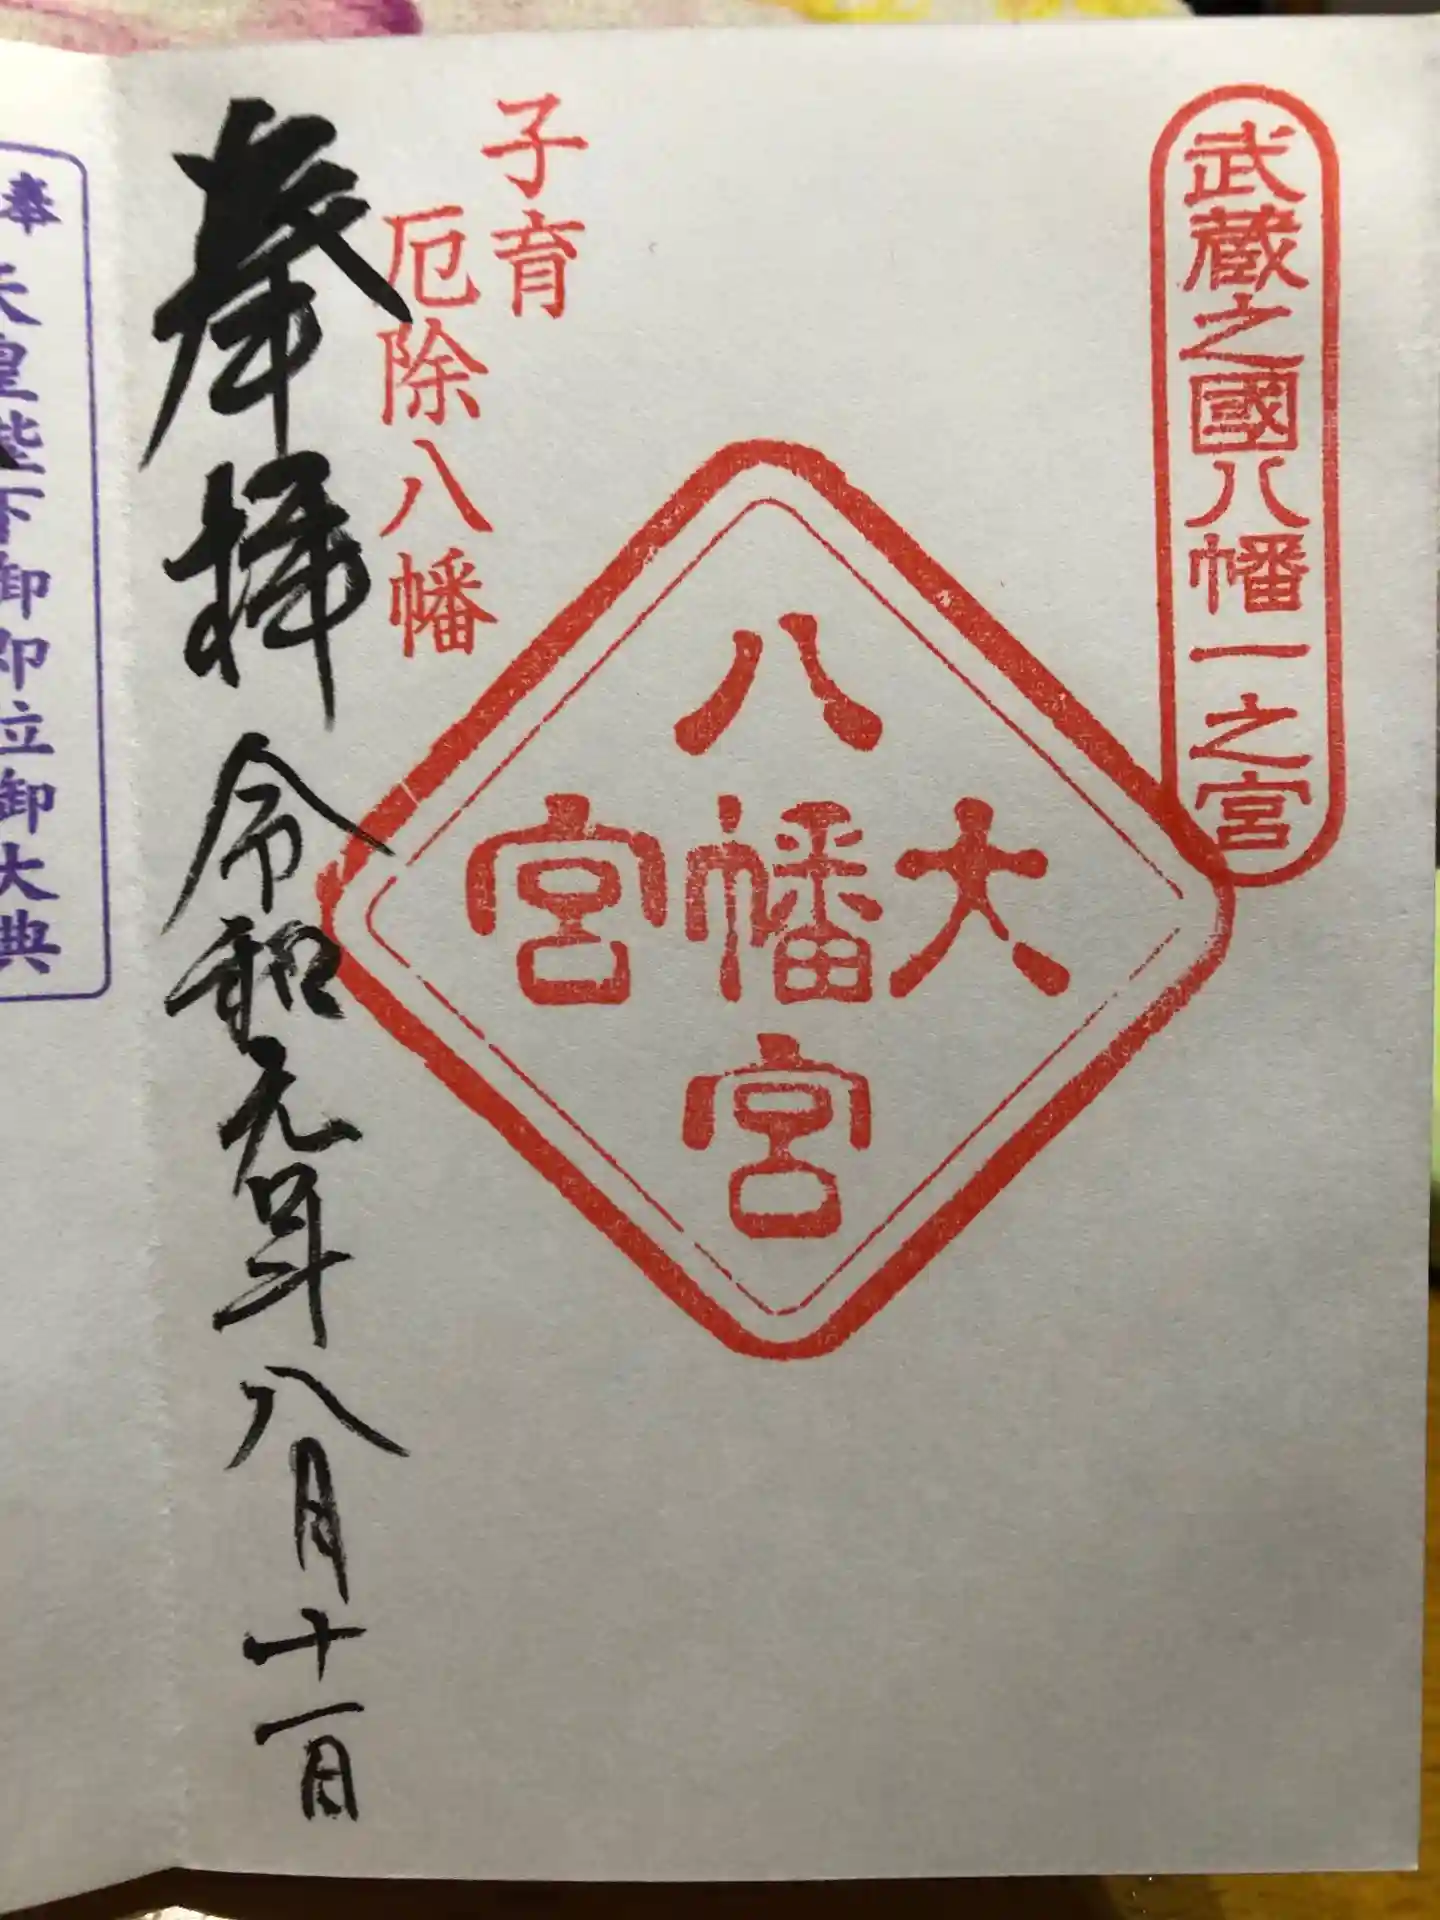 武蔵之國八幡一之宮
八幡宮
大
宮
子育
厄除八幡
奉拝 令和元年八月十一日
奉 天皇陛下御即位御大典